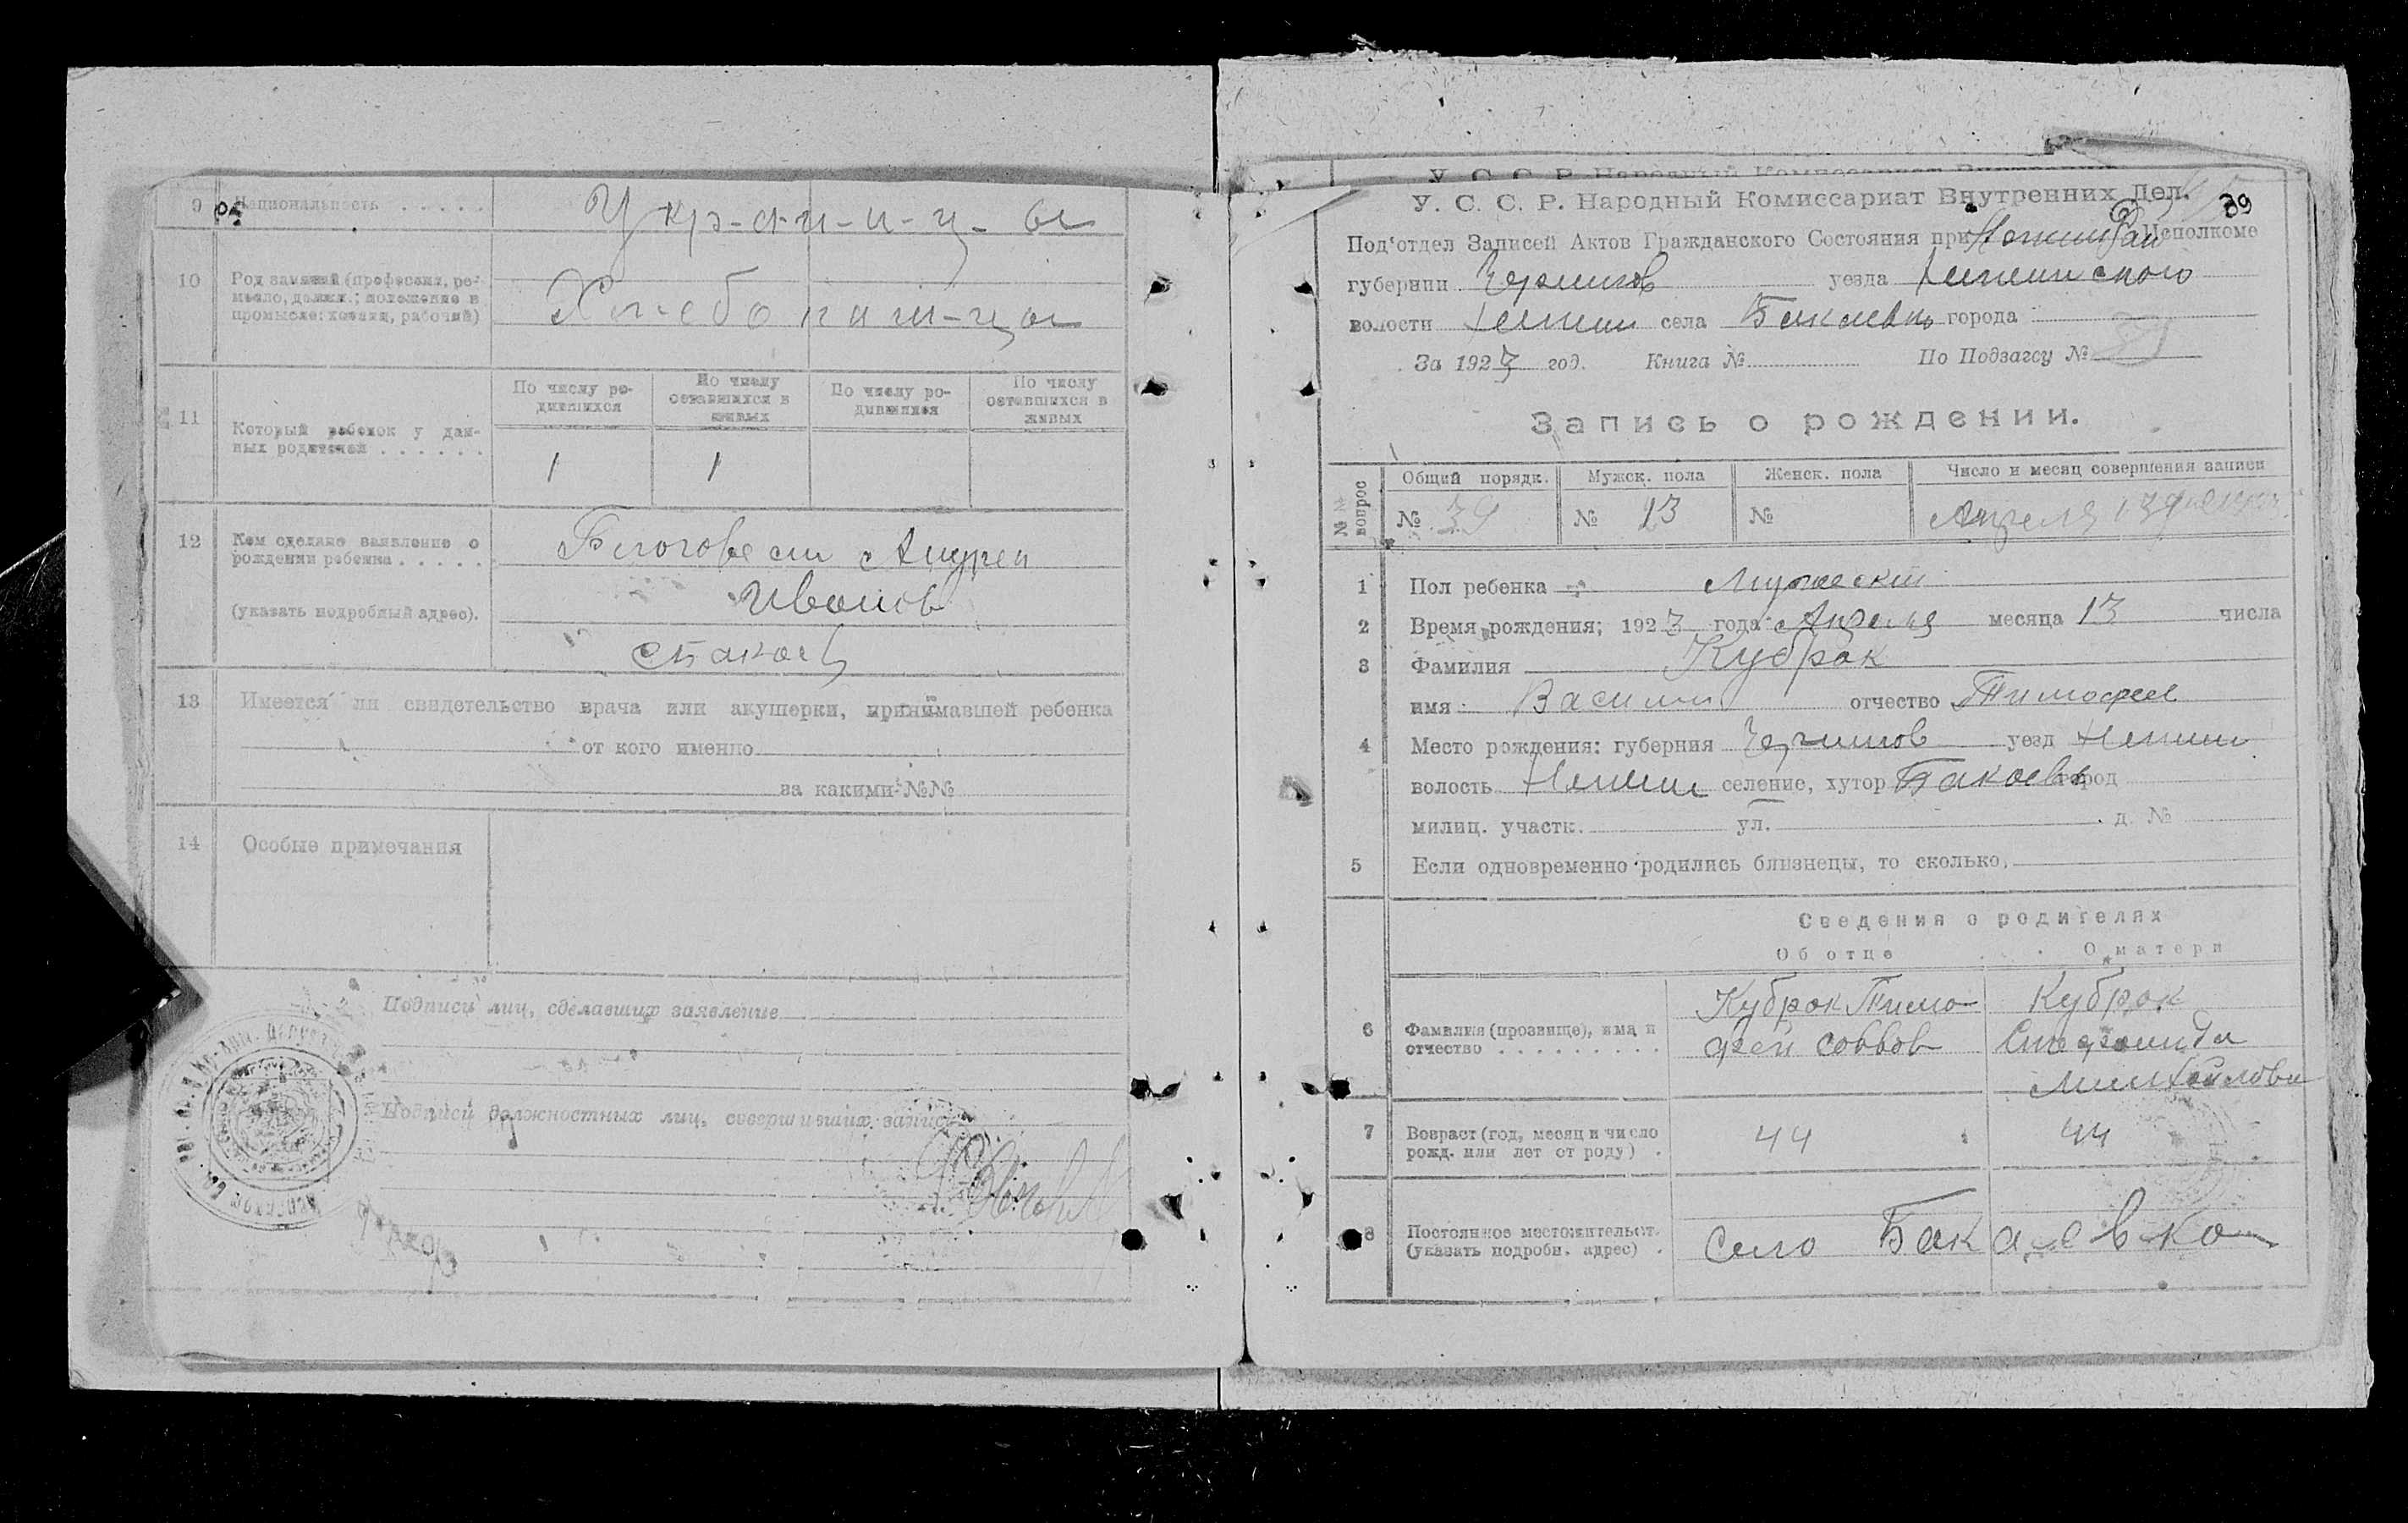 9 Национальность . . . . .
Укр-а-и-н-ц-ы
10 Род занятий (профессия, ре-
месло, должн.; положение в
промысле: хозяин, рабочий)
Хлебопаш-цы
11 Который ребенок у дан-
ных родителей . . . . . .
По числу ро-
дившихся
По числу
оставшихся в
живых
По числу ро-
дившихся
По числу
оставшихся в
живых
1 1
12 Кем сделано заявление о
рождении ребенка . . . . .
(указать подробный адрес).
Андрей
Иванов
13 Имеется ли свидетельство врача или акушерки, принимавшей ребенка
от кого именно
за какими №№
14 Особые примечания
Подписи лиц, сделавших заявление
Подписи должностных лиц, совершивших запись
39
У. С. С. Р. Народный Комиссариат Внутренних Дел.
Под'отдел Записей Актов Гражданского Состояния при Исполкоме
губернии Чернигов уезда Нежинского
волости Нежин села Бакаевк города
За 1923 год. Книга № По Подзагсу № 39
Запись о рождении.
№№ вопрос
Общий порядк. Мужск. пола Женск. пола Число и месяц совершения записи
№ 39 № 23 № Апреля
1 Пол ребенка Мужеский
2 Время рождения; 1923 года Апреля месяца 13 числа
3 Фамилия Кубрак
имя Василий отчество Тимофее
4 Место рождения: губерния Чернигов уезд Нежин
волость Нежин селение, хутор Бакаевк город
милиц. участк. ул. д. №
5 Если одновременно родились близнецы, то сколько
Сведения о родителях
Об отце О матери
6 Фамилия (прозвище), имя и
отчество . . . . . . . . .
Кубрак Тимо-
фей Саввов
Кубрак
Степанида
Михайлова
7 Возраст (год, месяц и число
рожд. или лет от роду) .
44 44
8 Постоянное местожительст.
(указать подробн. адрес) .
Село Бакаевка